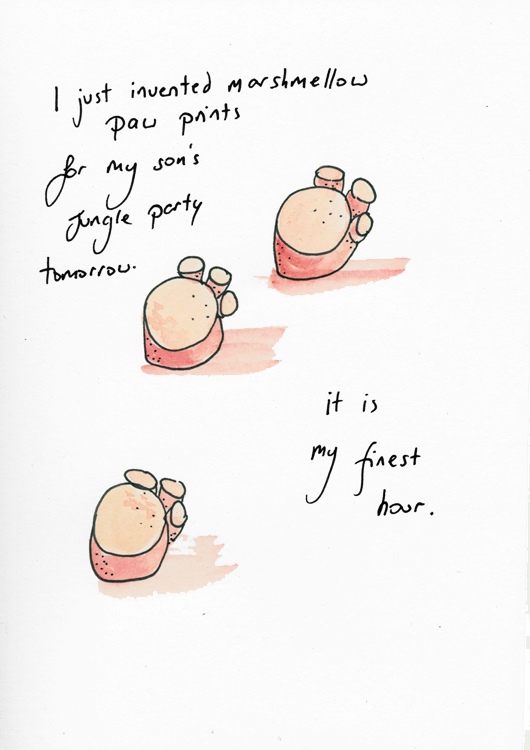 I just invented marshmellow
paw prints
for my son's
Jungle party
tomorrow.
it is
my finest
hour.